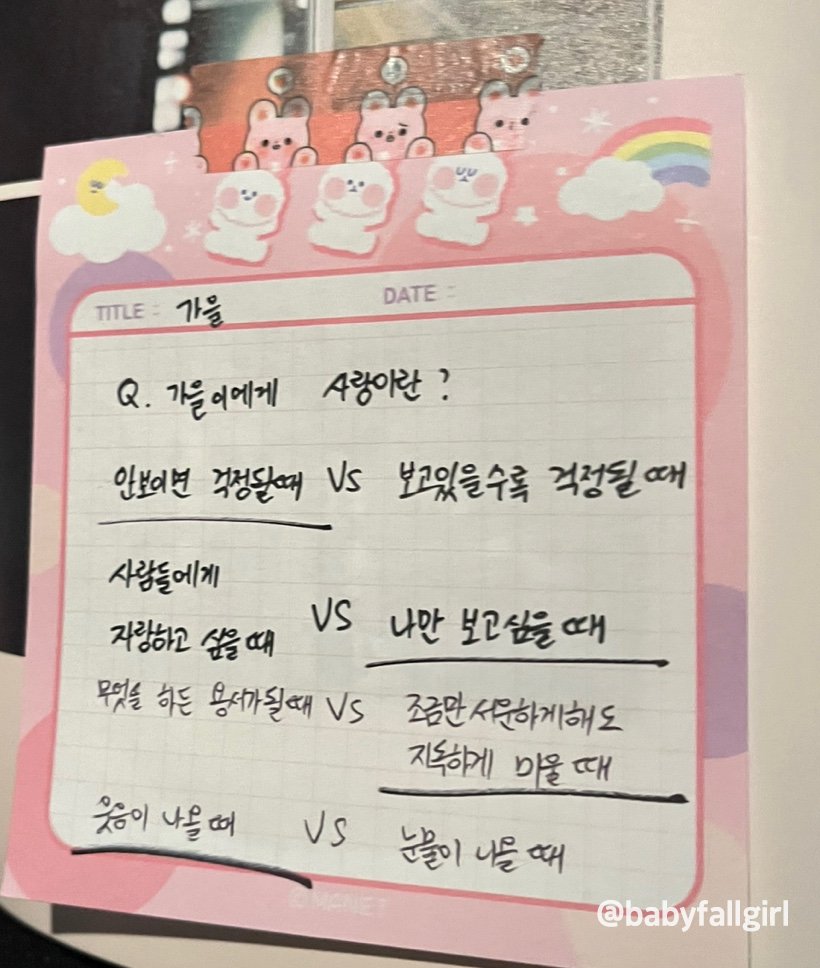 TITLE : 가을 DATE :
Q. 가을이에게 사랑이란?
안보이면 걱정될때 VS 보고있을수록 걱정될때
사람들에게
자랑하고 싶을때 VS 나만 보고싶을때
무엇을 하든 용서가될때 VS 조금만서운하게해도
지독하게 미울때
웃음이 나올때 VS 눈물이 나올때
@babyfallgirl